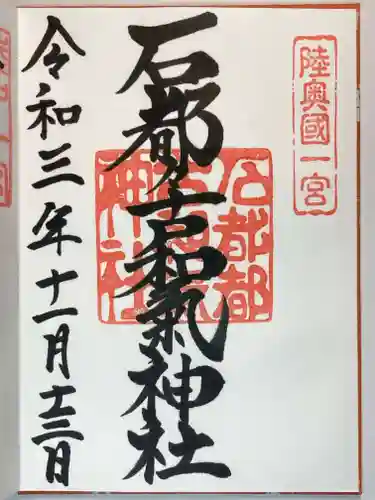 陸奥國一宮
石都々古和氣神社
石都都
古和氣
神社
令和三年十一月十三日